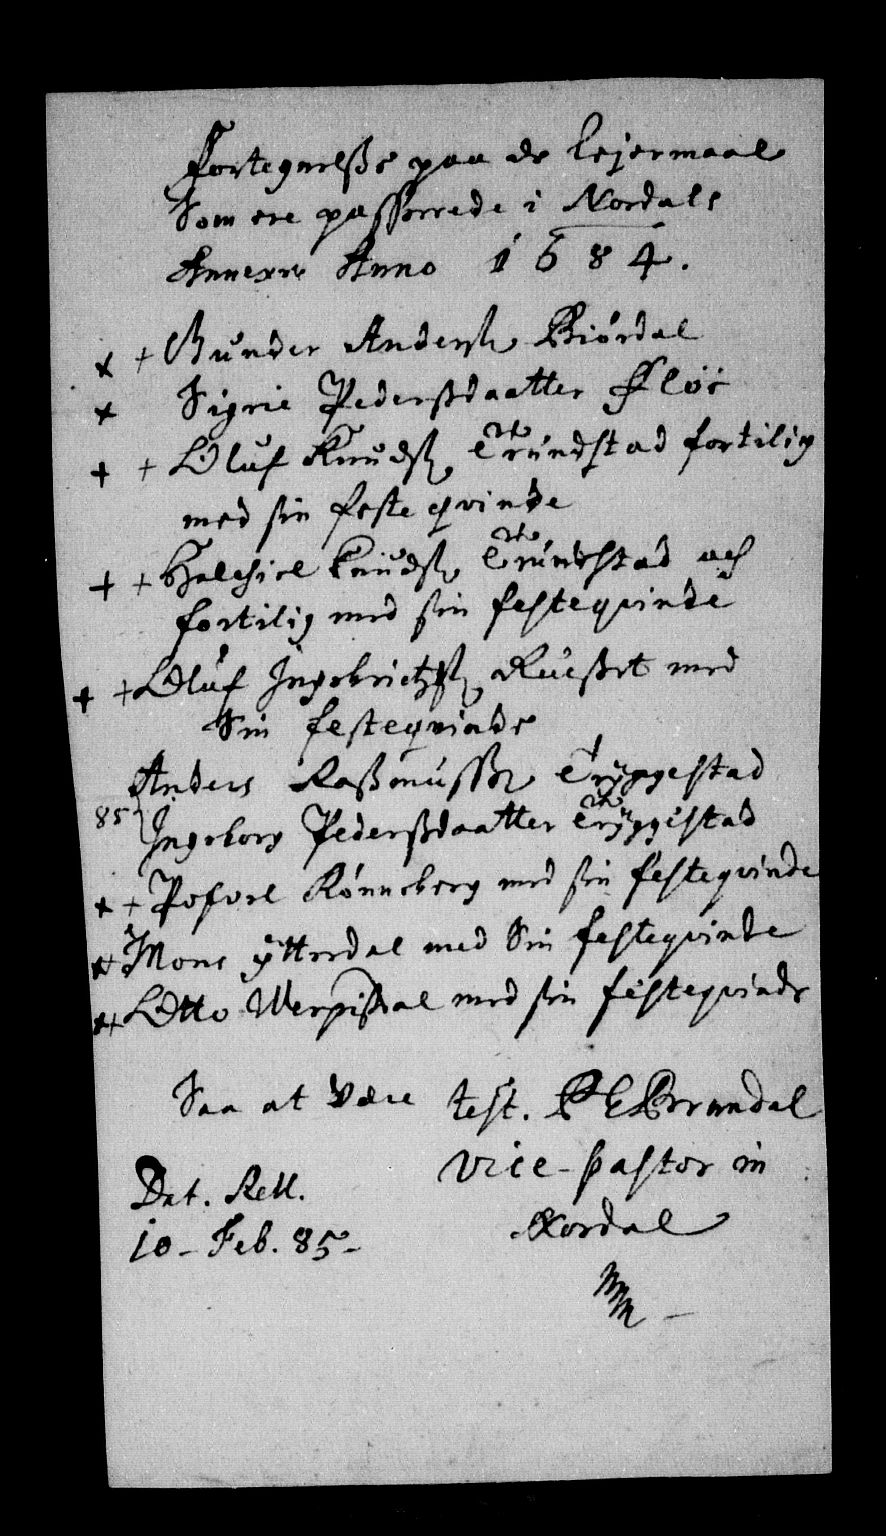 Fortegnelsse paa de lejermaal
Som ere passerede i Nordals
Annexer Anno 1684.
× + Gunder Anderss Biørdal
× Sigrie Pedersdaatter Fløe
+ + Oluf Knudss Trundstad fortilig
med sin feste qvinde
+ + Halchiel Knudss Trundstad och
fortilig med sin festeqvinde
+ + Oluf Ingebrichtss med
Sin festeqvinde
Anders Rasmusss Tryggestad
85 Ingeborg Pedersdaatter Tryggestad
× + Pofvel Rønneberg med sin festeqvinde
× + Mons ytterdal med Sin festeqvinde
× + Otto Werpisdal med sin festeqvinde
Saa at være test. P E Brundal
vice-pastor in
Dat. Rell.
10 - Feb. 85 -
Nordal